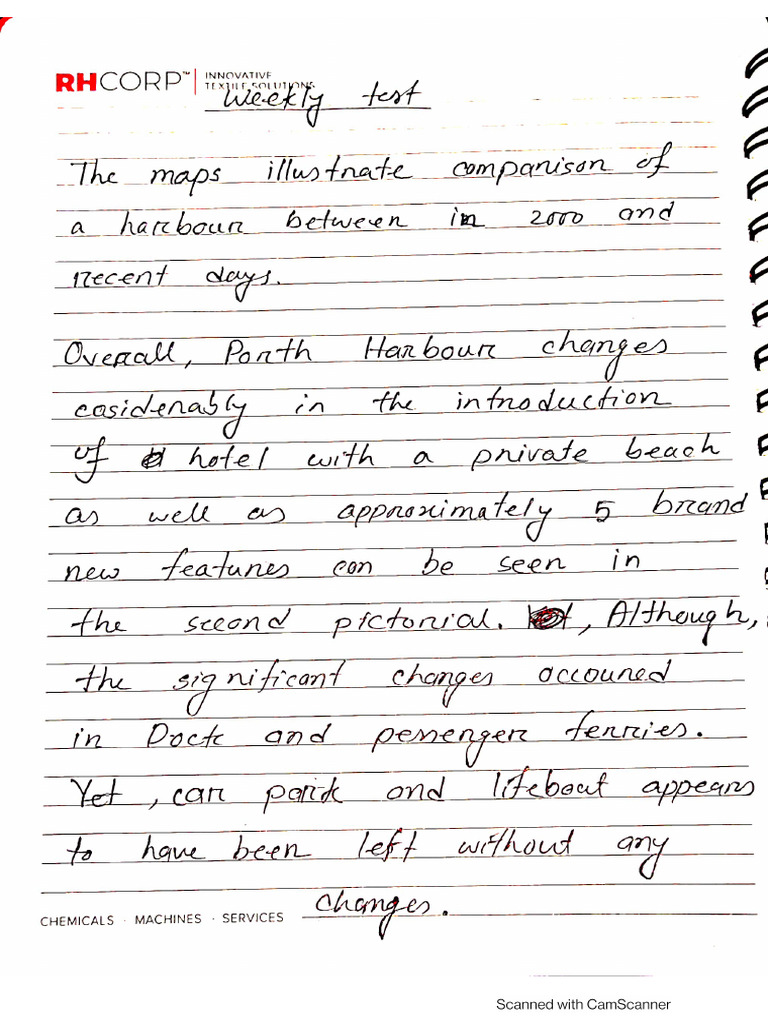 RHCORP™ INNOVATIVE
TEXTILE SOLUTIONS
Weekly test
The maps illustrate comparison of
a harbour between in 2000 and
recent days.
Overall, Porth Harbour changes
cosiderably in the introduction
of hotel with a private beach
as well as approximately 5 brand
new features can be seen in
the second pictorial. , Although,
the significant changes occoured
in Dock and pessenger ferries.
Yet, car park and lifeboat appears
to have been left without any
changes.
CHEMICALS · MACHINES · SERVICES
Scanned with CamScanner